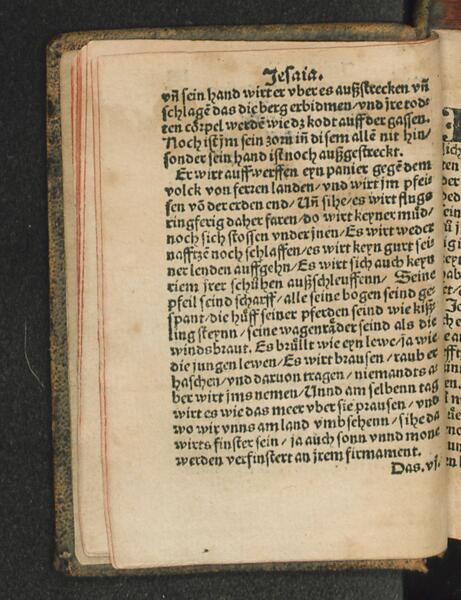 Jesaia.
vñ sein hand wirt er vber es außstrecken vñ
schlagẽ das die berg erbidmen/vnd jre tod-
ten cörpel werdẽ wie dz kodt auff der gassen.
Noch ist jm sein zorn iñ disem allẽ nit hin/
sonder sein hand ist noch außgestreckt.
Er wirt auff werffen eyn panier gegẽ dem
volck von ferren landen/vnd wirt jm pfei-
fen võ der erden end/Uñ sihe/es wirt flugs
ringferig daher faren/do wirt keyner müd/
noch sich stossen vnder jnen/Es wirt weder
naffitzẽ noch schlaffen/es wirt keyn gurt sei-
ner lenden auffgehn/Es wirt sich auch keyn
riem jrer schühen außschleuffenn/ Seine
pfeil seind scharff/alle seine bogen seind ge-
spant/die hüff seiner pferden seind wie kiß-
ling steynn/seine wagenräder seind als die
windsbraut. Es brüllt wie eyn lewe/ja wie
die jungen lewen/Es wirt brausen/raub er
haschen/vnd daruon tragen/niemandts a-
ber wirt jms nemen/Unnd am selbenn tag
wirt es wie das meer vber sie prausen/vnd
wo wir vnns am land vmbschenn/sihe da
wirts finster sein/ja auch sonn vnnd mone
werden verfinstert an jrem firmament.
Das.vj.